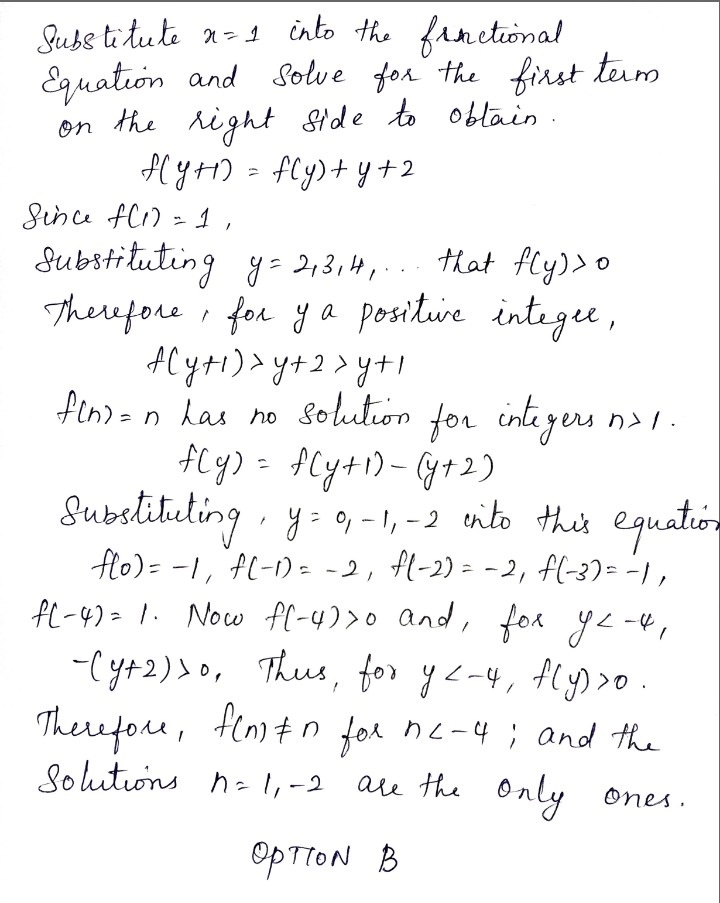 Substitute x=1 into the functional
Equation and Solve for the first term
on the right side to obtain.
f(y+1) = f(y)+y+2
Since f(1) = 1,
Substituting y=2,3,4,... that f(y)>0
Therefore, for y a positive integer,
f(y+1)>y+2>y+1
f(n)=n has no solution for integers n>1.
f(y) = f(y+1)-(y+2)
Substituting, y=0,-1,-2 into this equation
f(0)=-1, f(-1)=-2, f(-2)=-2, f(-3)=-1,
f(-4)=1. Now f(-4)>0 and, for y<-4,
-(y+2)>0, Thus, for y<-4, f(y)>0.
Therefore, f(n)≠n for n<-4; and the
Solutions n=1,-2 are the only ones.
OPTION B